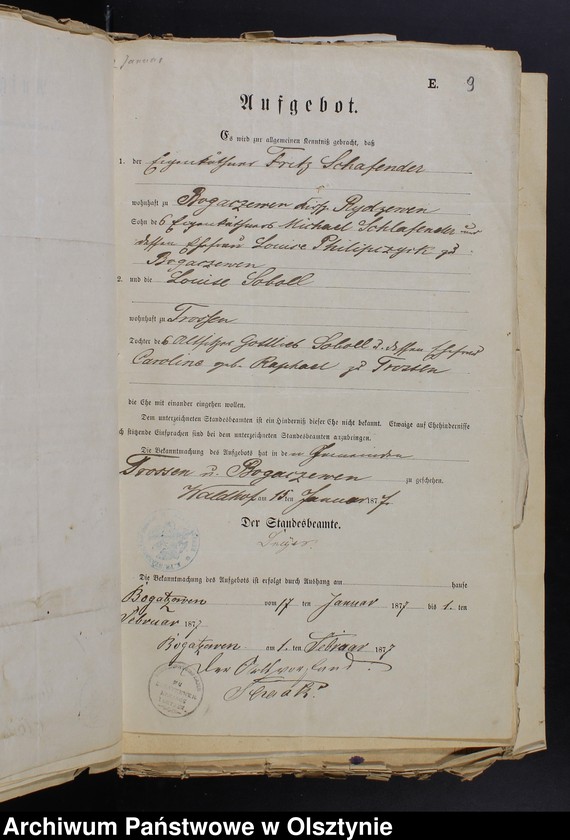 Januar
E. 9
Aufgebot.
Es wird zur allgemeinen Kenntniß gebracht, daß
1. der Eigenkäthner Fritz Schafender
wohnhaft zu Bogaczewen Kirchsp. Rydzewen
Sohn des Eigenkäthners Michael Schlafender und
dessen Ehefrau Louise Philipczyk zu
Bogaczewen
2. und die Louise Soboll
wohnhaft zu Trossen
Tochter des Altsitzer Gottlieb Soboll u. dessen Ehefrau
Caroline geb. Raphael zu Trossen
die Ehe mit einander eingehen wollen.
Dem unterzeichneten Standesbeamten ist ein Hinderniß dieser Ehe nicht bekannt. Etwaige auf Ehehindernisse
sich stützende Einsprachen sind bei dem unterzeichneten Standesbeamten anzubringen.
Die Bekanntmachung des Aufgebots hat in den Gemeinden
Trossen u. Bogaczewen zu geschehen.
Waldhof am 15 ten Januar 1877.
Der Standesbeamte.
Die Bekanntmachung des Aufgebots ist erfolgt durch Aushang am hause
Bogatzewen vom 17 ten Januar 1877 bis 1. ten
Februar 1877
Bogatzewen am 1. ten Februar 1877
Der Ortsvorstand.
Archiwum Państwowe w Olsztynie